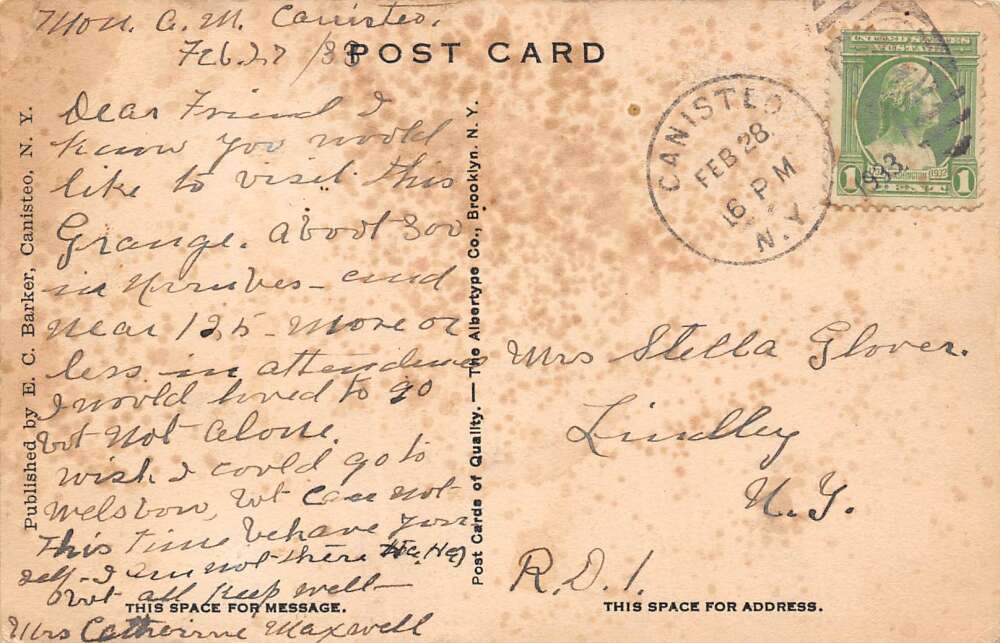 Mon. A.M. Canisteo.
Feb. 27 /33
POST CARD
Dear Friend I
know you would
like to visit this
Grange. about 300
in Numbes - and
near 125 - more or
less in attendences
I would loved to go
but not alone.
wish I could go to
Welsboro, but can not
this time behave your
self - I am not there Ha, Ha)
but all keep well -
Mrs Catherine Maxwell
THIS SPACE FOR MESSAGE.
Published by E. C. Barker, Canisteo, N. Y.
Post Cards of Quality. — The Albertype Co., Brooklyn. N. Y.
CANISTEO
FEB 28
6 PM
N.Y.
1933.
1 1
Mrs Stella Glover.
Lindley
N.Y.
R.D.1.
THIS SPACE FOR ADDRESS.